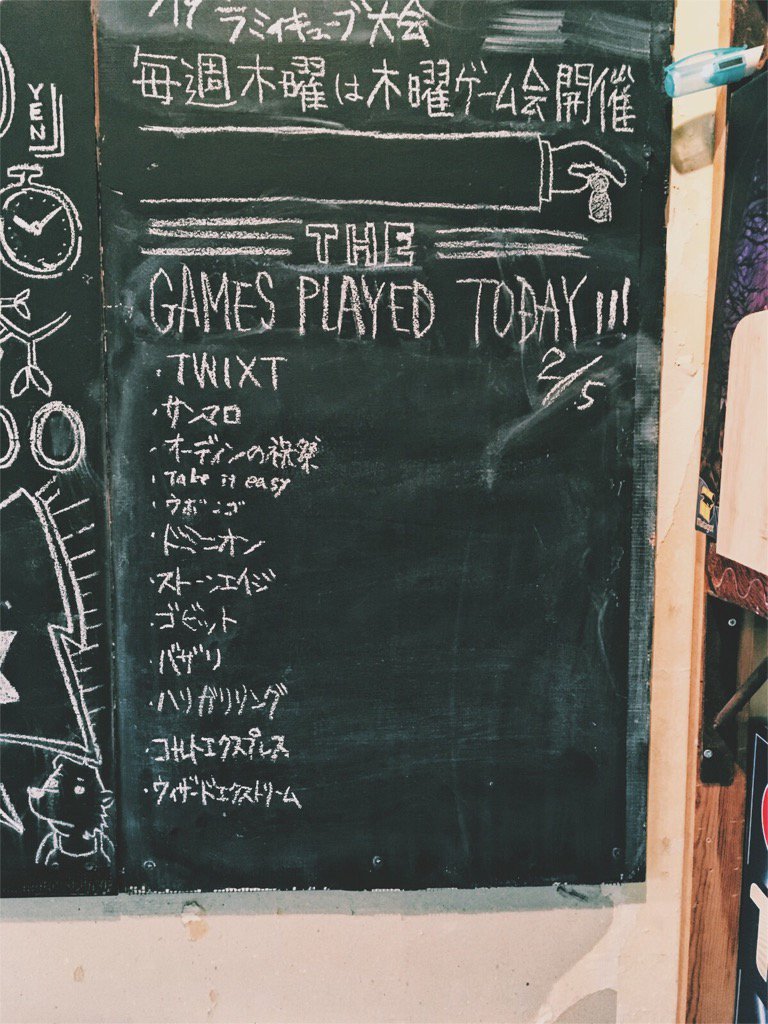 ラミィキューブ大会
毎週木曜は木曜ゲーム会開催
YEN
THE
GAMES PLAYED TODAY!!!
2/5
・TWIXT
・サンマロ
・オーディンの祝祭
・Take it easy
・ウボンゴ
・ドミニオン
・ストーンエイジ
・ゴビット
・バザリ
・ハリガリリング
・コルトエクスプレス
・ウィザードエクストリーム